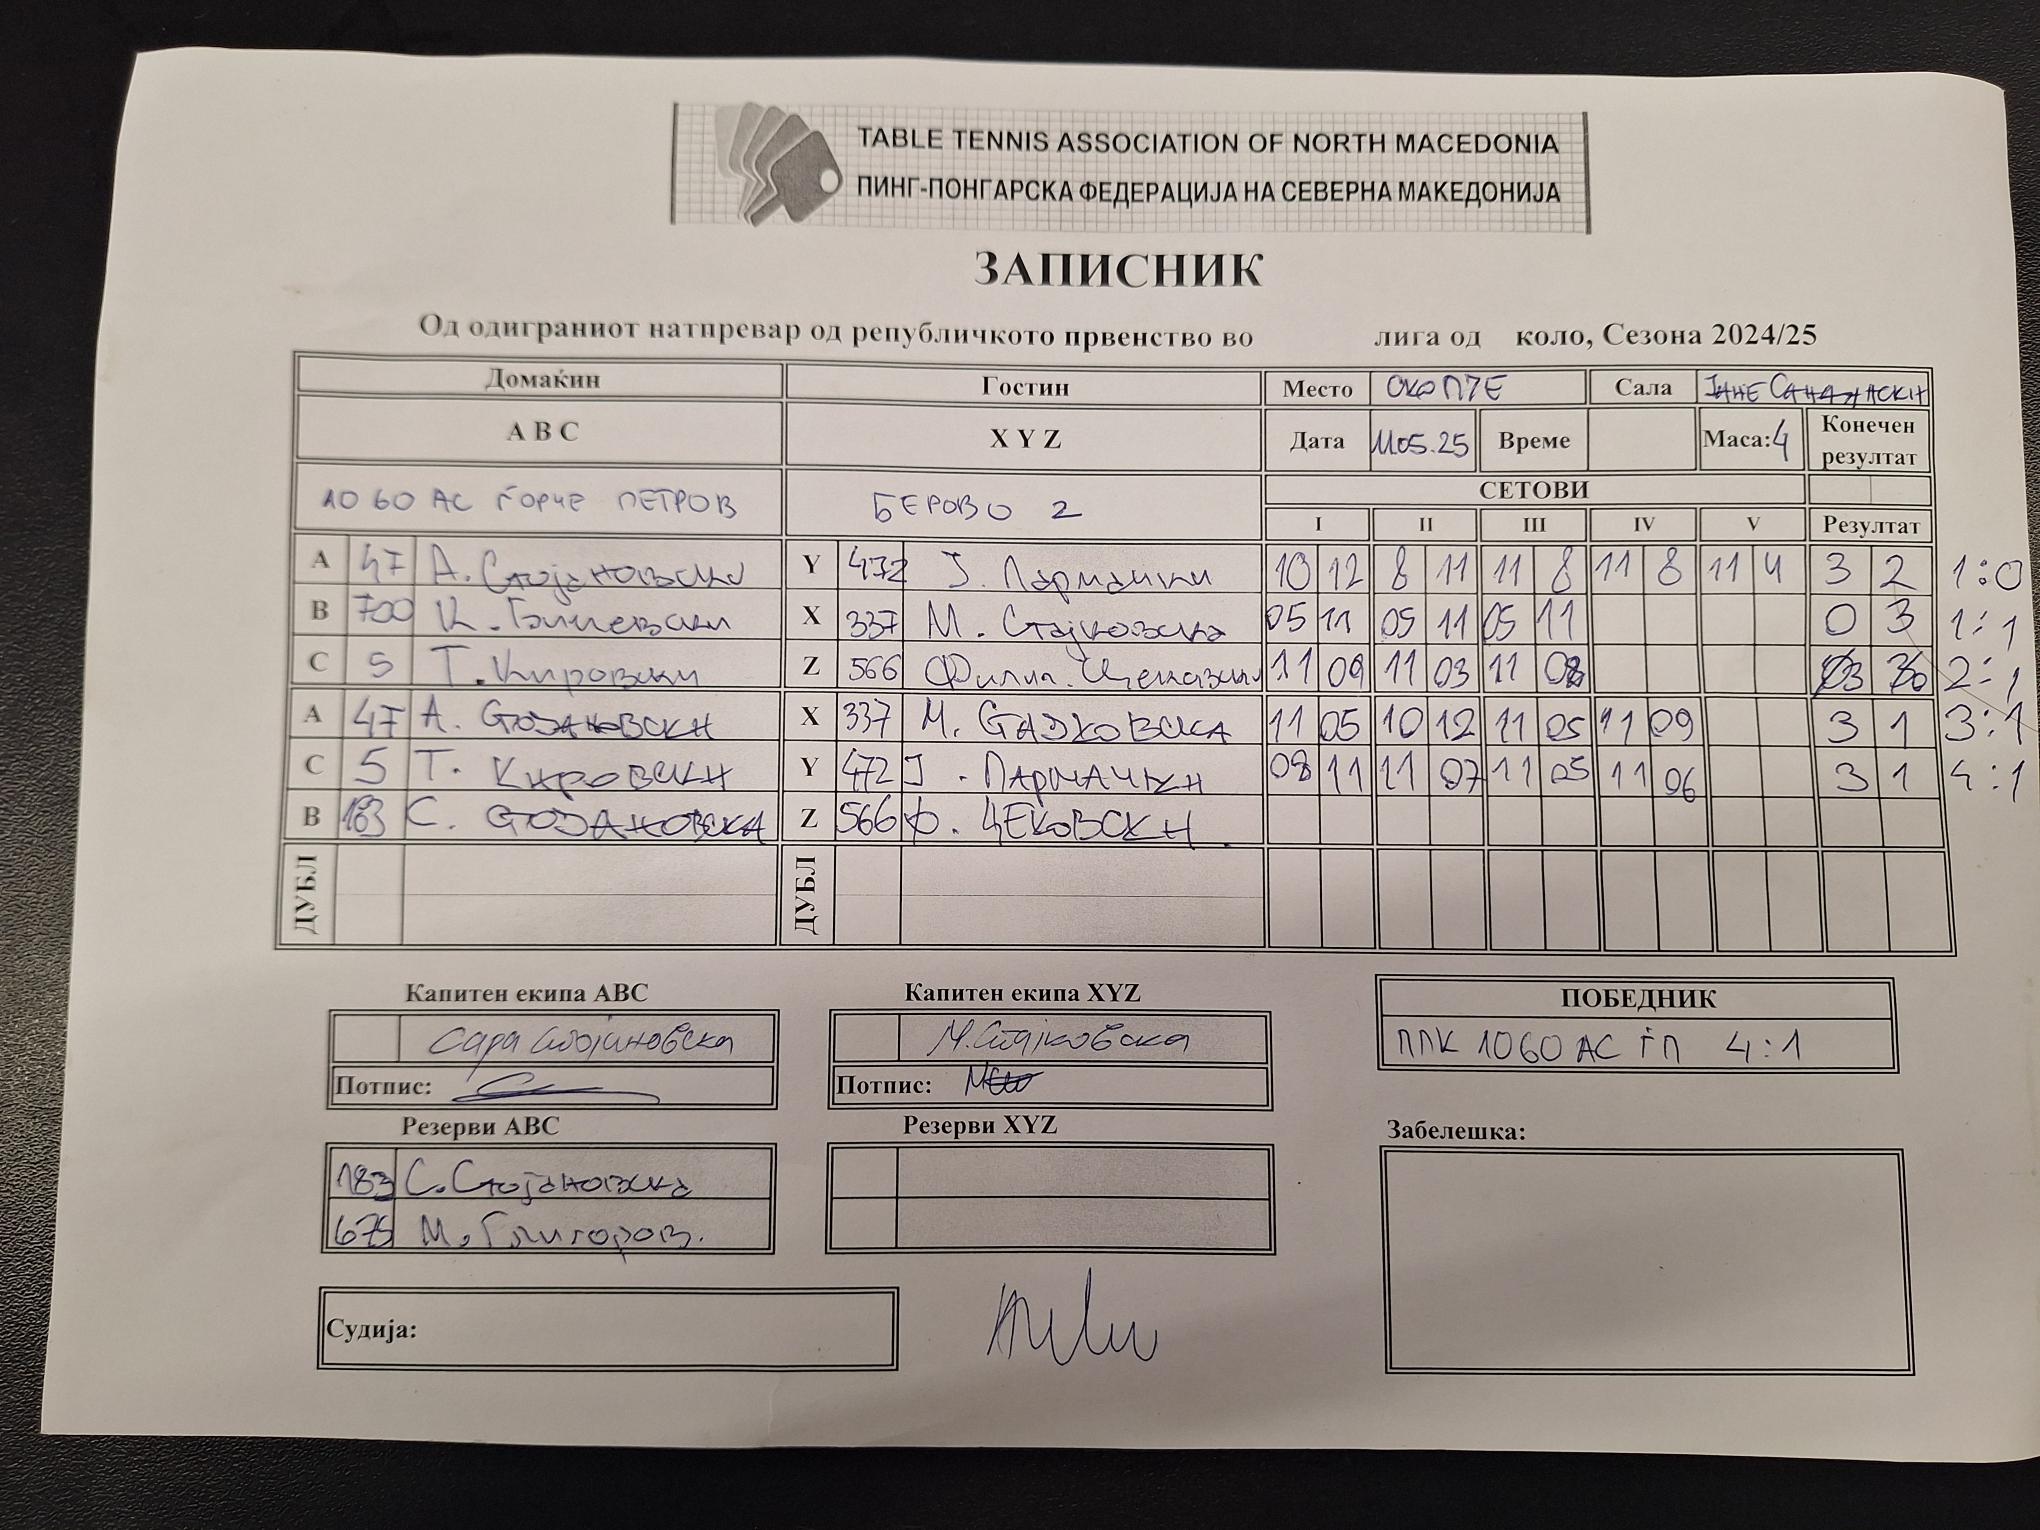 TABLE TENNIS ASSOCIATION OF NORTH MACEDONIA
ПИНГ-ПОНГАРСКА ФЕДЕРАЦИЈА НА СЕВЕРНА МАКЕДОНИЈА
ЗАПИСНИК
Од одиграниот натпревар од републичкото првенство во лига од коло, Сезона 2024/25
Домаќин Гостин Место СКОПЈЕ Сала ЈАНЕ САНДАНСКИ
A B C X Y Z Дата 11.05.25 Време Маса: 4 Конечен резултат
1060 АС ЃОРЧЕ ПЕТРОВ БЕРОВО 2 СЕТОВИ
I II III IV V Резултат
A 47 А. Стојановски Y 472 Ј. Пармачки 10 12 8 11 11 8 11 8 11 4 3 2 1:0
B 700 К. X 337 М. Стајковска 05 11 05 11 05 11 0 3 1:1
C 5 Т. Кировски Z 566 Филип. 11 09 11 03 11 08 3 0 2:1
A 47 А. СТОЈАНОВСКИ X 337 М. СТАЈКОВСКА 11 05 10 12 11 05 11 09 3 1 3:1
C 5 Т. КИРОВСКИ Y 472 Ј. ПАРМАЧКИ 08 11 11 07 11 05 11 06 3 1 4:1
B 183 С. СТОЈАНОВСКА Z 566 Ф. ЦЕКОВСКИ
ДУБЛ ДУБЛ
Капитен екипа ABC Капитен екипа XYZ ПОБЕДНИК
Сара Стојановска М. Стајковска ППК 1060 АС ЃП 4:1
Потпис: Потпис:
Резерви ABC Резерви XYZ Забелешка:
183 С. Стојановска
675 М. Глигоров.
Судија: